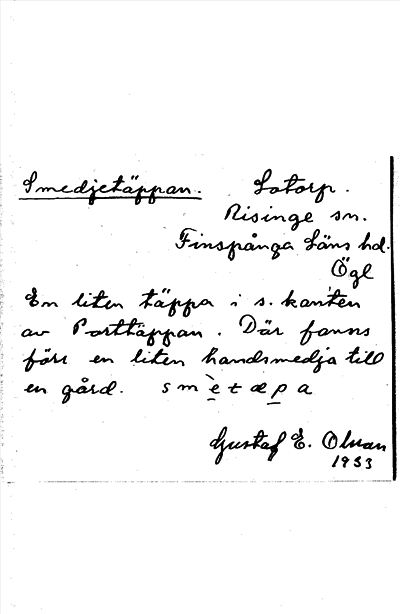 Smedjetäppan. Lotorp.
Risinge sn.
Finspånga Läns hd.
Ögl
En liten täppa i s. kanten
av Porttäppan. Där fanns
förr en liten handsmedja till
en gård. smè̱tæp̱a
Gustaf E. Olsson
1933